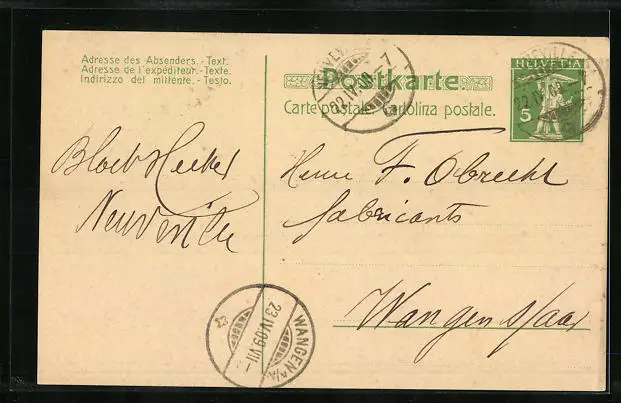 Adresse des Absenders. - Text.
Adresse de l'expéditeur. - Texte.
Indirizzo del mittente. - Testo.
Postkarte.
Carte postale. Cartolina postale.
HELVETIA
5
Neuveville
Herrn F. Obrecht
fabricants
Wangen s/aar
WANGEN A/A.
23 IV 09 VII